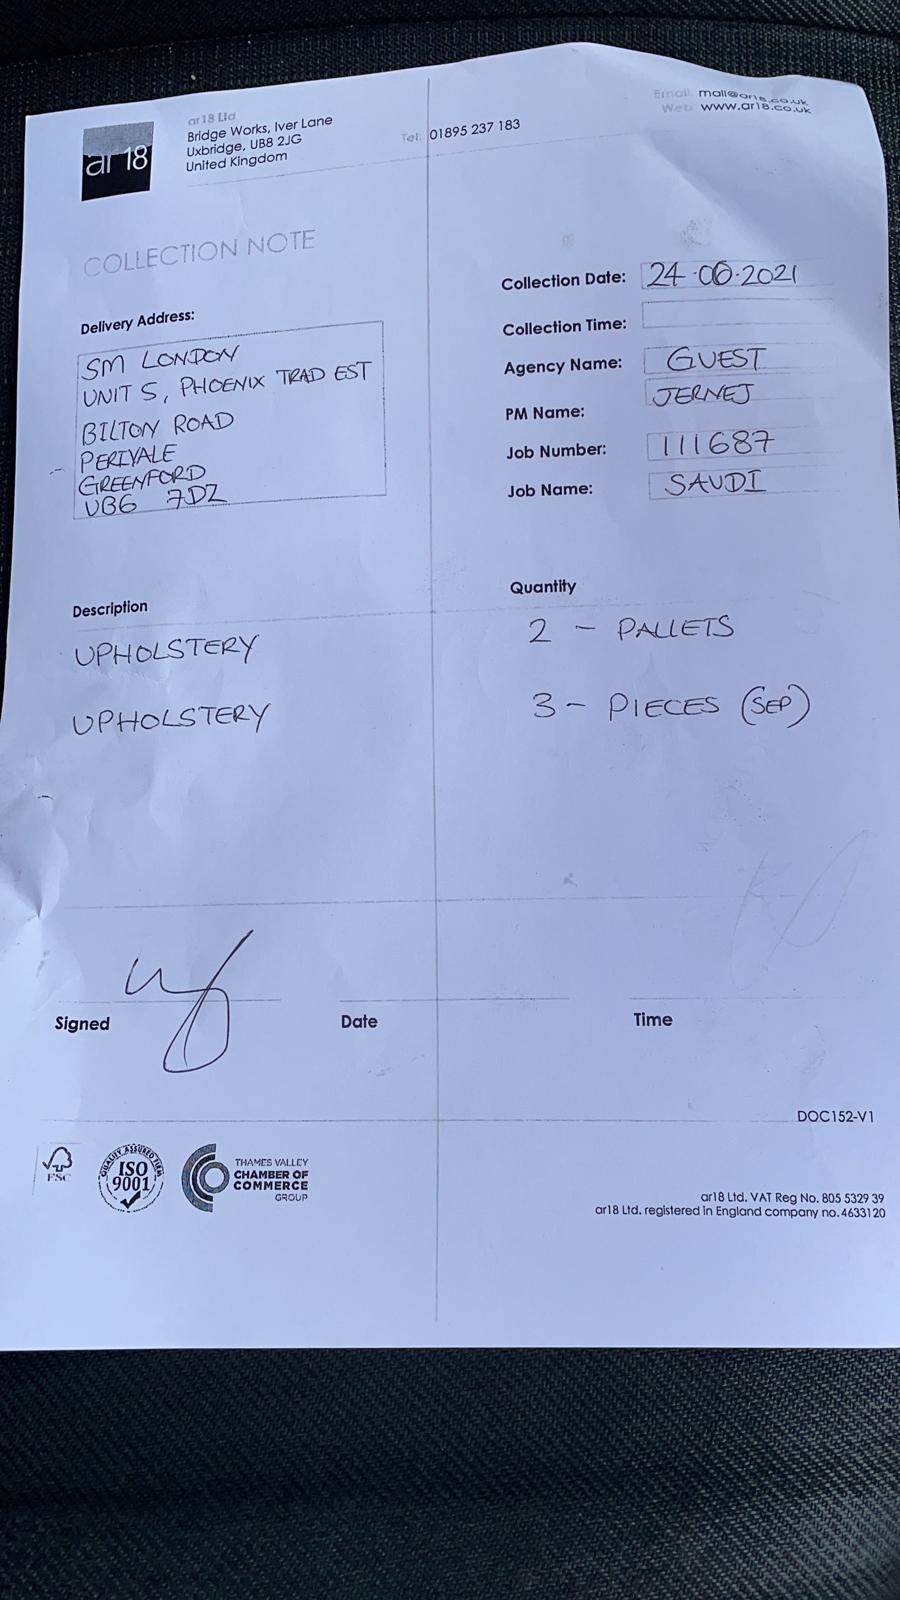 ar18
ar18 Ltd
Bridge Works, Iver Lane
Uxbridge, UB8 2JG
United Kingdom
Tel: 01895 237 183
Email: mail@ar18.co.uk
Web: www.ar18.co.uk
COLLECTION NOTE
Delivery Address:
SM LONDON
UNIT 5, PHOENIX TRAD EST
BILTON ROAD
PERIVALE
GREENFORD
UB6 7DZ
Collection Date: 24.06.2021
Collection Time:
Agency Name: GUEST
PM Name: JERNEJ
Job Number: 111687
Job Name: SAUDI
Description Quantity
UPHOLSTERY 2 - PALLETS
UPHOLSTERY 3 - PIECES (SEP)
Signed Date Time
DOC152-V1
FSC
QUALITY ASSURED FIRM
ISO
9001
THAMES VALLEY
CHAMBER OF
COMMERCE
GROUP
ar18 Ltd. VAT Reg No. 805 5329 39
ar18 Ltd. registered in England company no. 4633120